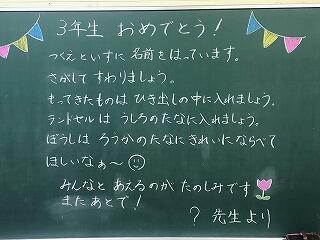 3年生 おめでとう!
つくえといすに 名前をはっています。
さがして すわりましょう。
もってきたものは ひき出しの中に入れましょう。
ランドセルは うしろのたなに入れましょう。
ぼうしは ろうかのたなに きれいにならべて
ほしいなぁ〜
みんなと あえるのが たのしみです
またあとで!
? 先生より